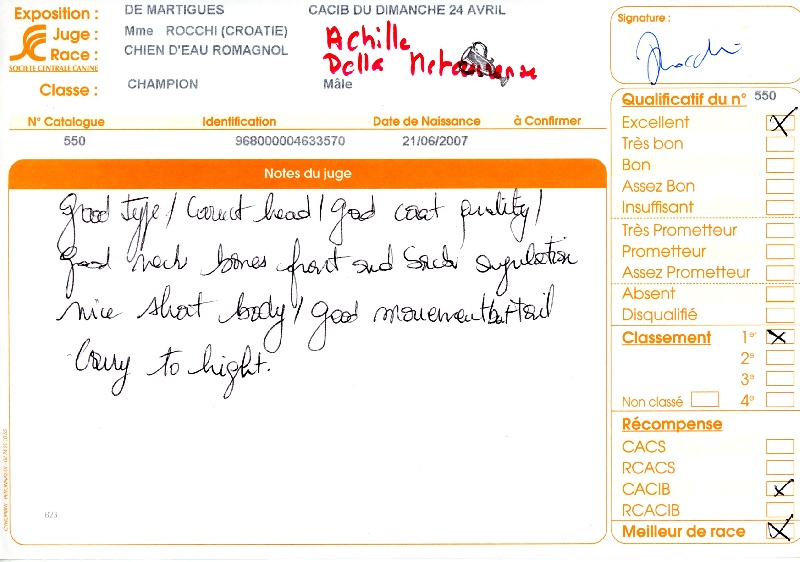 Exposition : DE MARTIGUES CACIB DU DIMANCHE 24 AVRIL
Juge : Mme ROCCHI (CROATIE)
Race : CHIEN D'EAU ROMAGNOL
SOCIETE CENTRALE CANINE
Achille
Della
Classe : CHAMPION Mâle
N° Catalogue Identification Date de Naissance à Confirmer
550 968000004633570 21/06/2007
Notes du juge
good type / Correct head / good coat quality /
good neck bones front and back angulation
nice short body / good movement but tail
Carry to hight.
823
Signature :
Rocchi
Qualificatif du n° 550
Excellent X
Très bon
Bon
Assez Bon
Insuffisant
Très Prometteur
Prometteur
Assez Prometteur
Absent
Disqualifié
Classement 1er X
2e
3e
Non classé 4e
Récompense
CACS
RCACS
CACIB X
RCACIB
Meilleur de race X